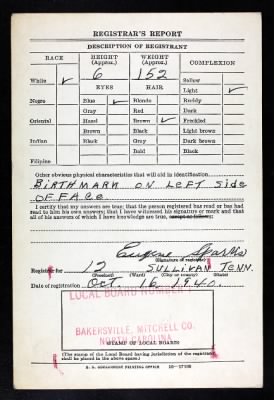 REGISTRAR'S REPORT
DESCRIPTION OF REGISTRANT
RACE HEIGHT (Approx.) WEIGHT (Approx.) COMPLEXION
6 152 Sallow
White ✓ EYES HAIR Light ✓
Negro Blue ✓ Blonde Ruddy
Gray Red Dark
Oriental Hazel Brown ✓ Freckled
Brown Black Light brown
Indian Black Gray Dark brown
Bald Black
Filipino
Other obvious physical characteristics that will aid in identification
BIRTHMARK ON LEFT SIDE
OF FACE
I certify that my answers are true; that the person registered has read or has had read to him his own answers; that I have witnessed his signature or mark and that all of his answers of which I have knowledge are true, except as follows:
Eugene
(Signature of registrar)
Registrar for 12 SULLIVAN TENN.
(Precinct) (Ward) (City or county) (State)
Date of registration Oct. 16 1940.
LOCAL BOARD NUMBER
BAKERSVILLE, MITCHELL CO.
NORTH CAROLINA
STAMP OF LOCAL BOARD
(The stamp of the Local Board having jurisdiction of the registrant shall be placed in the above space.)
U. S. GOVERNMENT PRINTING OFFICE